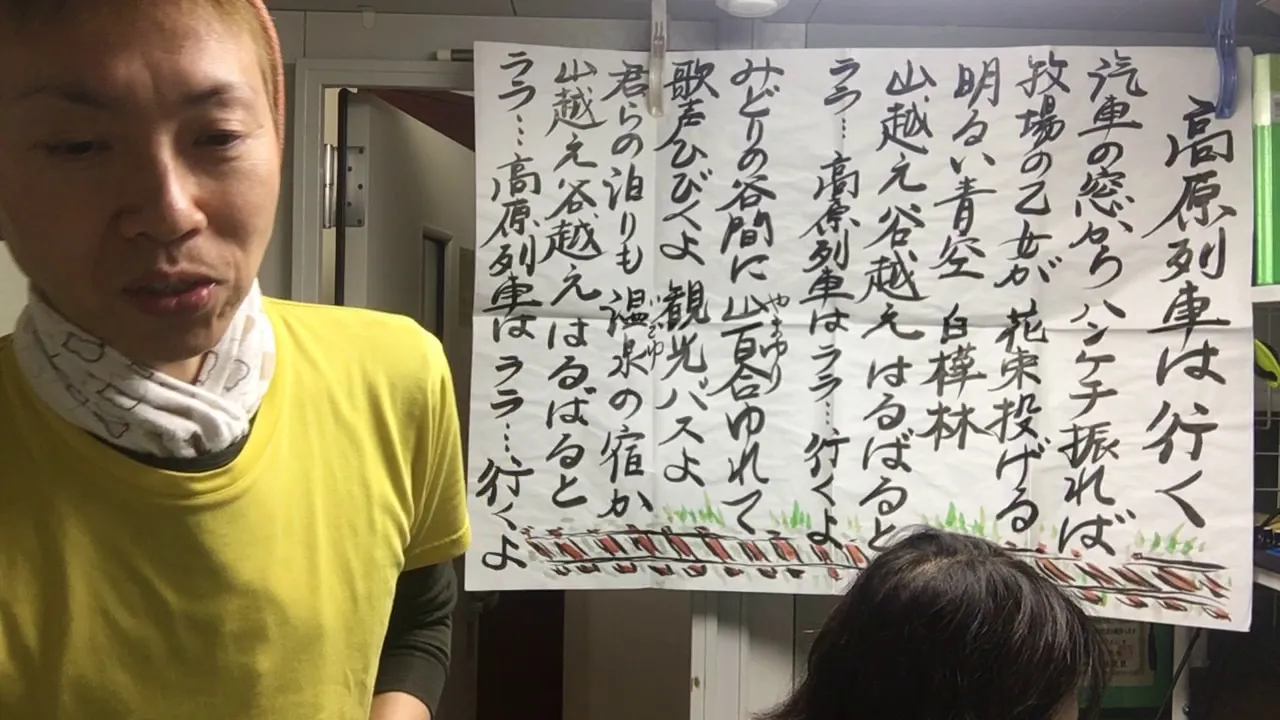 高原列車は行く
汽車の窓から ハンケチ振れば
牧場の乙女が 花束投げる
明るい青空 白樺林
山越え谷越え はるばると
ララ… 高原列車は ララ… 行くよ
みどりの谷間に 山百合ゆれて
やまゆり
歌声ひびくよ 観光バスよ
君らの泊りも 温泉の宿か
いでゆ
山越え谷越え はるばると
ララ… 高原列車は ララ… 行くよ